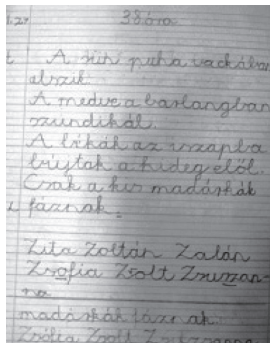 38 óra
A süni puha vackában
alszik.
A medve a barlangban
szundikál.
A békák az iszapba
bújtak a hideg elől.
Csak a kis madárkák
fáznak.
Zita Zoltán Zalán
Zsófia Zsolt Zsuzsan-
na
madárkák fáznak.
Zsófia Zsolt Zsuzsanna